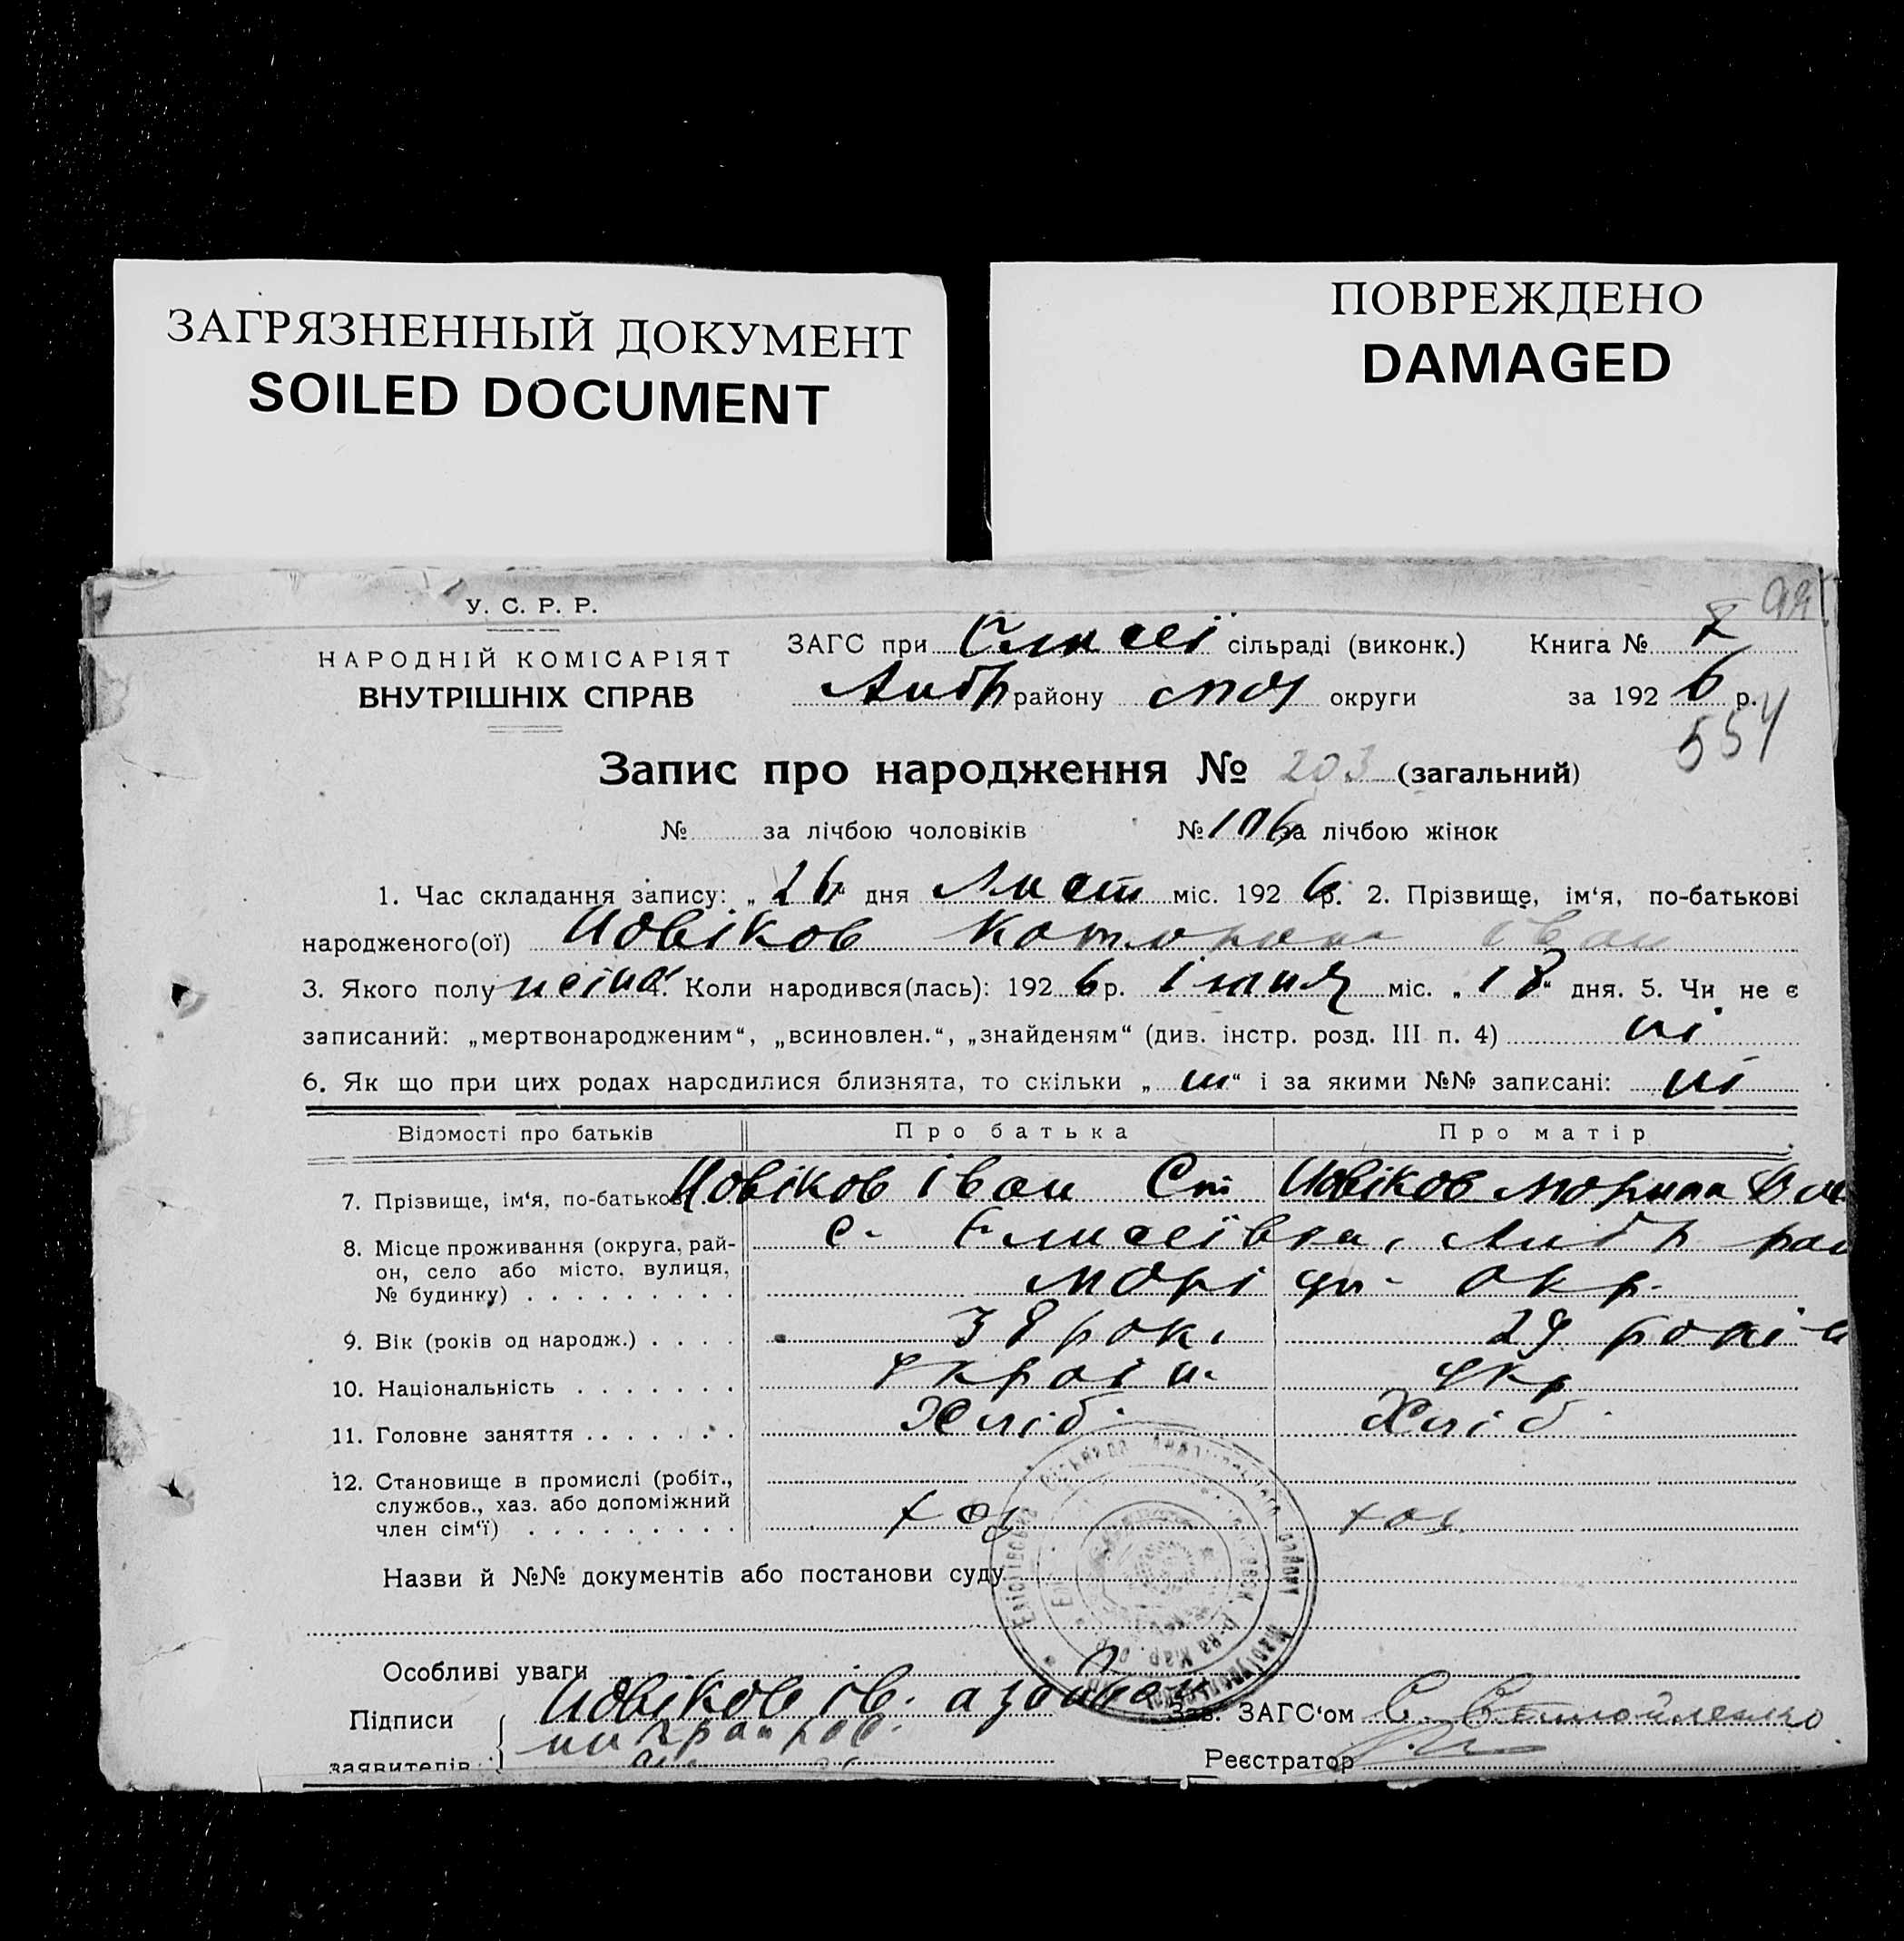 ЗАГРЯЗНЕННЫЙ ДОКУМЕНТ
SOILED DOCUMENT
ПОВРЕЖДЕНО
DAMAGED
У. С. Р. Р.
НАРОДНІЙ КОМІСАРІЯТ
ВНУТРІШНІХ СПРАВ
ЗАГС при сільраді (виконк.) Книга №
району округи за 192 6 р.
554
Запис про народження № 203 (загальний)
№ за лічбою чоловіків № 106 за лічбою жінок
1. Час складання запису: „ 26 “ дня Лист міс. 192 6 р. 2. Прізвище, ім‘я, по-батькові
народженого(ої) Новіков Іван
3. Якого полу 4. Коли народився(лась): 192 6 р. міс. „ 18 “ дня. 5. Чи не є
записаний: „мертвонародженим“, „всиновлен.“, „знайденям“ (див. інстр. розд. III п. 4) ні
6. Як що при цих родах народилися близнята, то скільки „ ні “ і за якими №№ записані: ні
Відомості про батьків Про батька Про матір
7. Прізвище, ім‘я, по-батьков Новіков Іван Ст Новіков
8. Місце проживання (округа, рай-
он, село або місто, вулиця,
№ будинку) с. Єлисеївка, Андр рай
Марі уп- окр.
9. Вік (років од народж.) 38 рок. 29 років
10. Національність україн. укр
11. Головне заняття Хліб. Хліб.
12. Становище в промислі (робіт.,
службов., хаз. або допоміжний
член сім‘ї) хоз хоз.
Назви й №№ документів або постанови суду
Особливі уваги
Підписи Новіков Ів. Зав. ЗАГС‘ом
заявителів Реєстратор